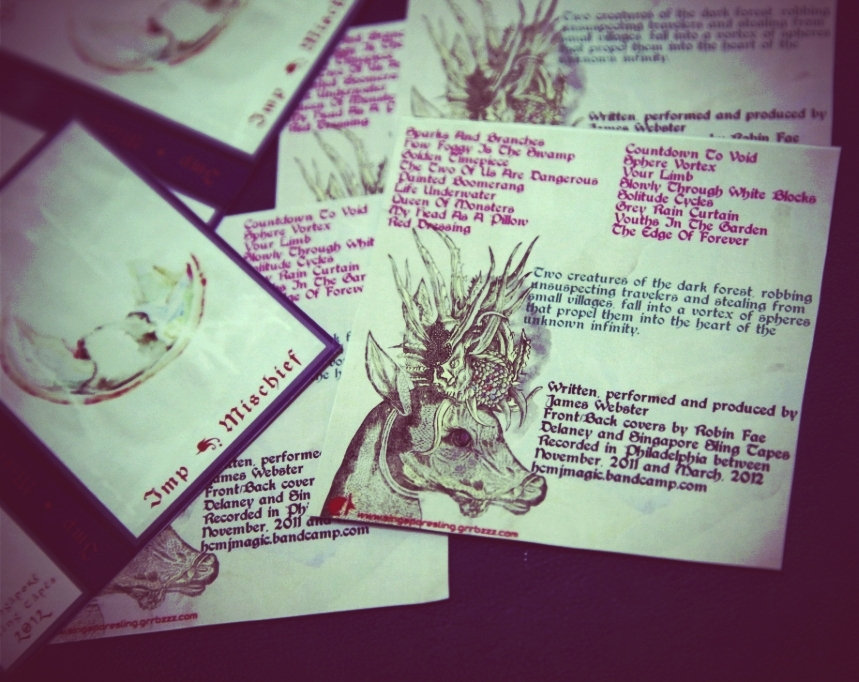 Imp Mischief
Two creatures of the dark forest, robbing
unsuspecting travelers and stealing from
small villages, fall into a vortex of spheres
that propel them into the heart of the
unknown infinity.
Written, performed and produced by
James Webster
Robin Fae
Red Dressing
Sparks And Branches
How Foggy Is The Swamp
Golden Timepiece
The Two Of Us Are Dangerous
Painted Boomerang
Life Underwater
Queen Of Monsters
My Head As A Pillow
Red Dressing
Countdown To Void
Sphere Vortex
Your Limb
Slowly Through White Blocks
Solitude Cycles
Grey Rain Curtain
Youths In The Garden
The Edge Of Forever
Two creatures of the dark forest, robbing
unsuspecting travelers and stealing from
small villages, fall into a vortex of spheres
that propel them into the heart of the
unknown infinity.
Written, performed and produced by
James Webster
Front/Back covers by Robin Fae
Delaney and Singapore Sling Tapes
Recorded in Philadelphia between
November, 2011 and March, 2012
hcmjmagic.bandcamp.com
www.singaporesling.grrbzzz.com
Countdown To Void
Sphere Vortex
Your Limb
Slowly Through Whit
Solitude Cycles
Rain Curtain
In The Gar
ge Of Forev
tten, performe
James Webster
Front/Back cover
Delaney and Sin
Recorded in Ph
November, 2011 and
hcmjmagic.bandcamp.com
singaporesling.grrbzzz.com
Imp Mischief
2012